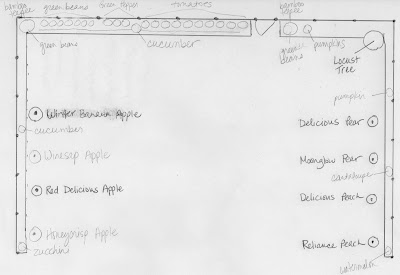 bamboo
teepee
green beans
green pepper
tomatoes
bamboo
teepee
green beans
cucumber
green
beans
pumpkins
Locust
Tree
pumpkin
Winter Banana Apple
cucumber
Delicious Pear
Winesap Apple
Moonglow Pear
cantaloupe
Red Delicious Apple
Delicious Peach
Honeycrisp Apple
zucchini
Reliance Peach
watermelon